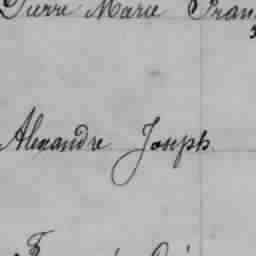 Pierre Marie Fran
Alexandre Joseph